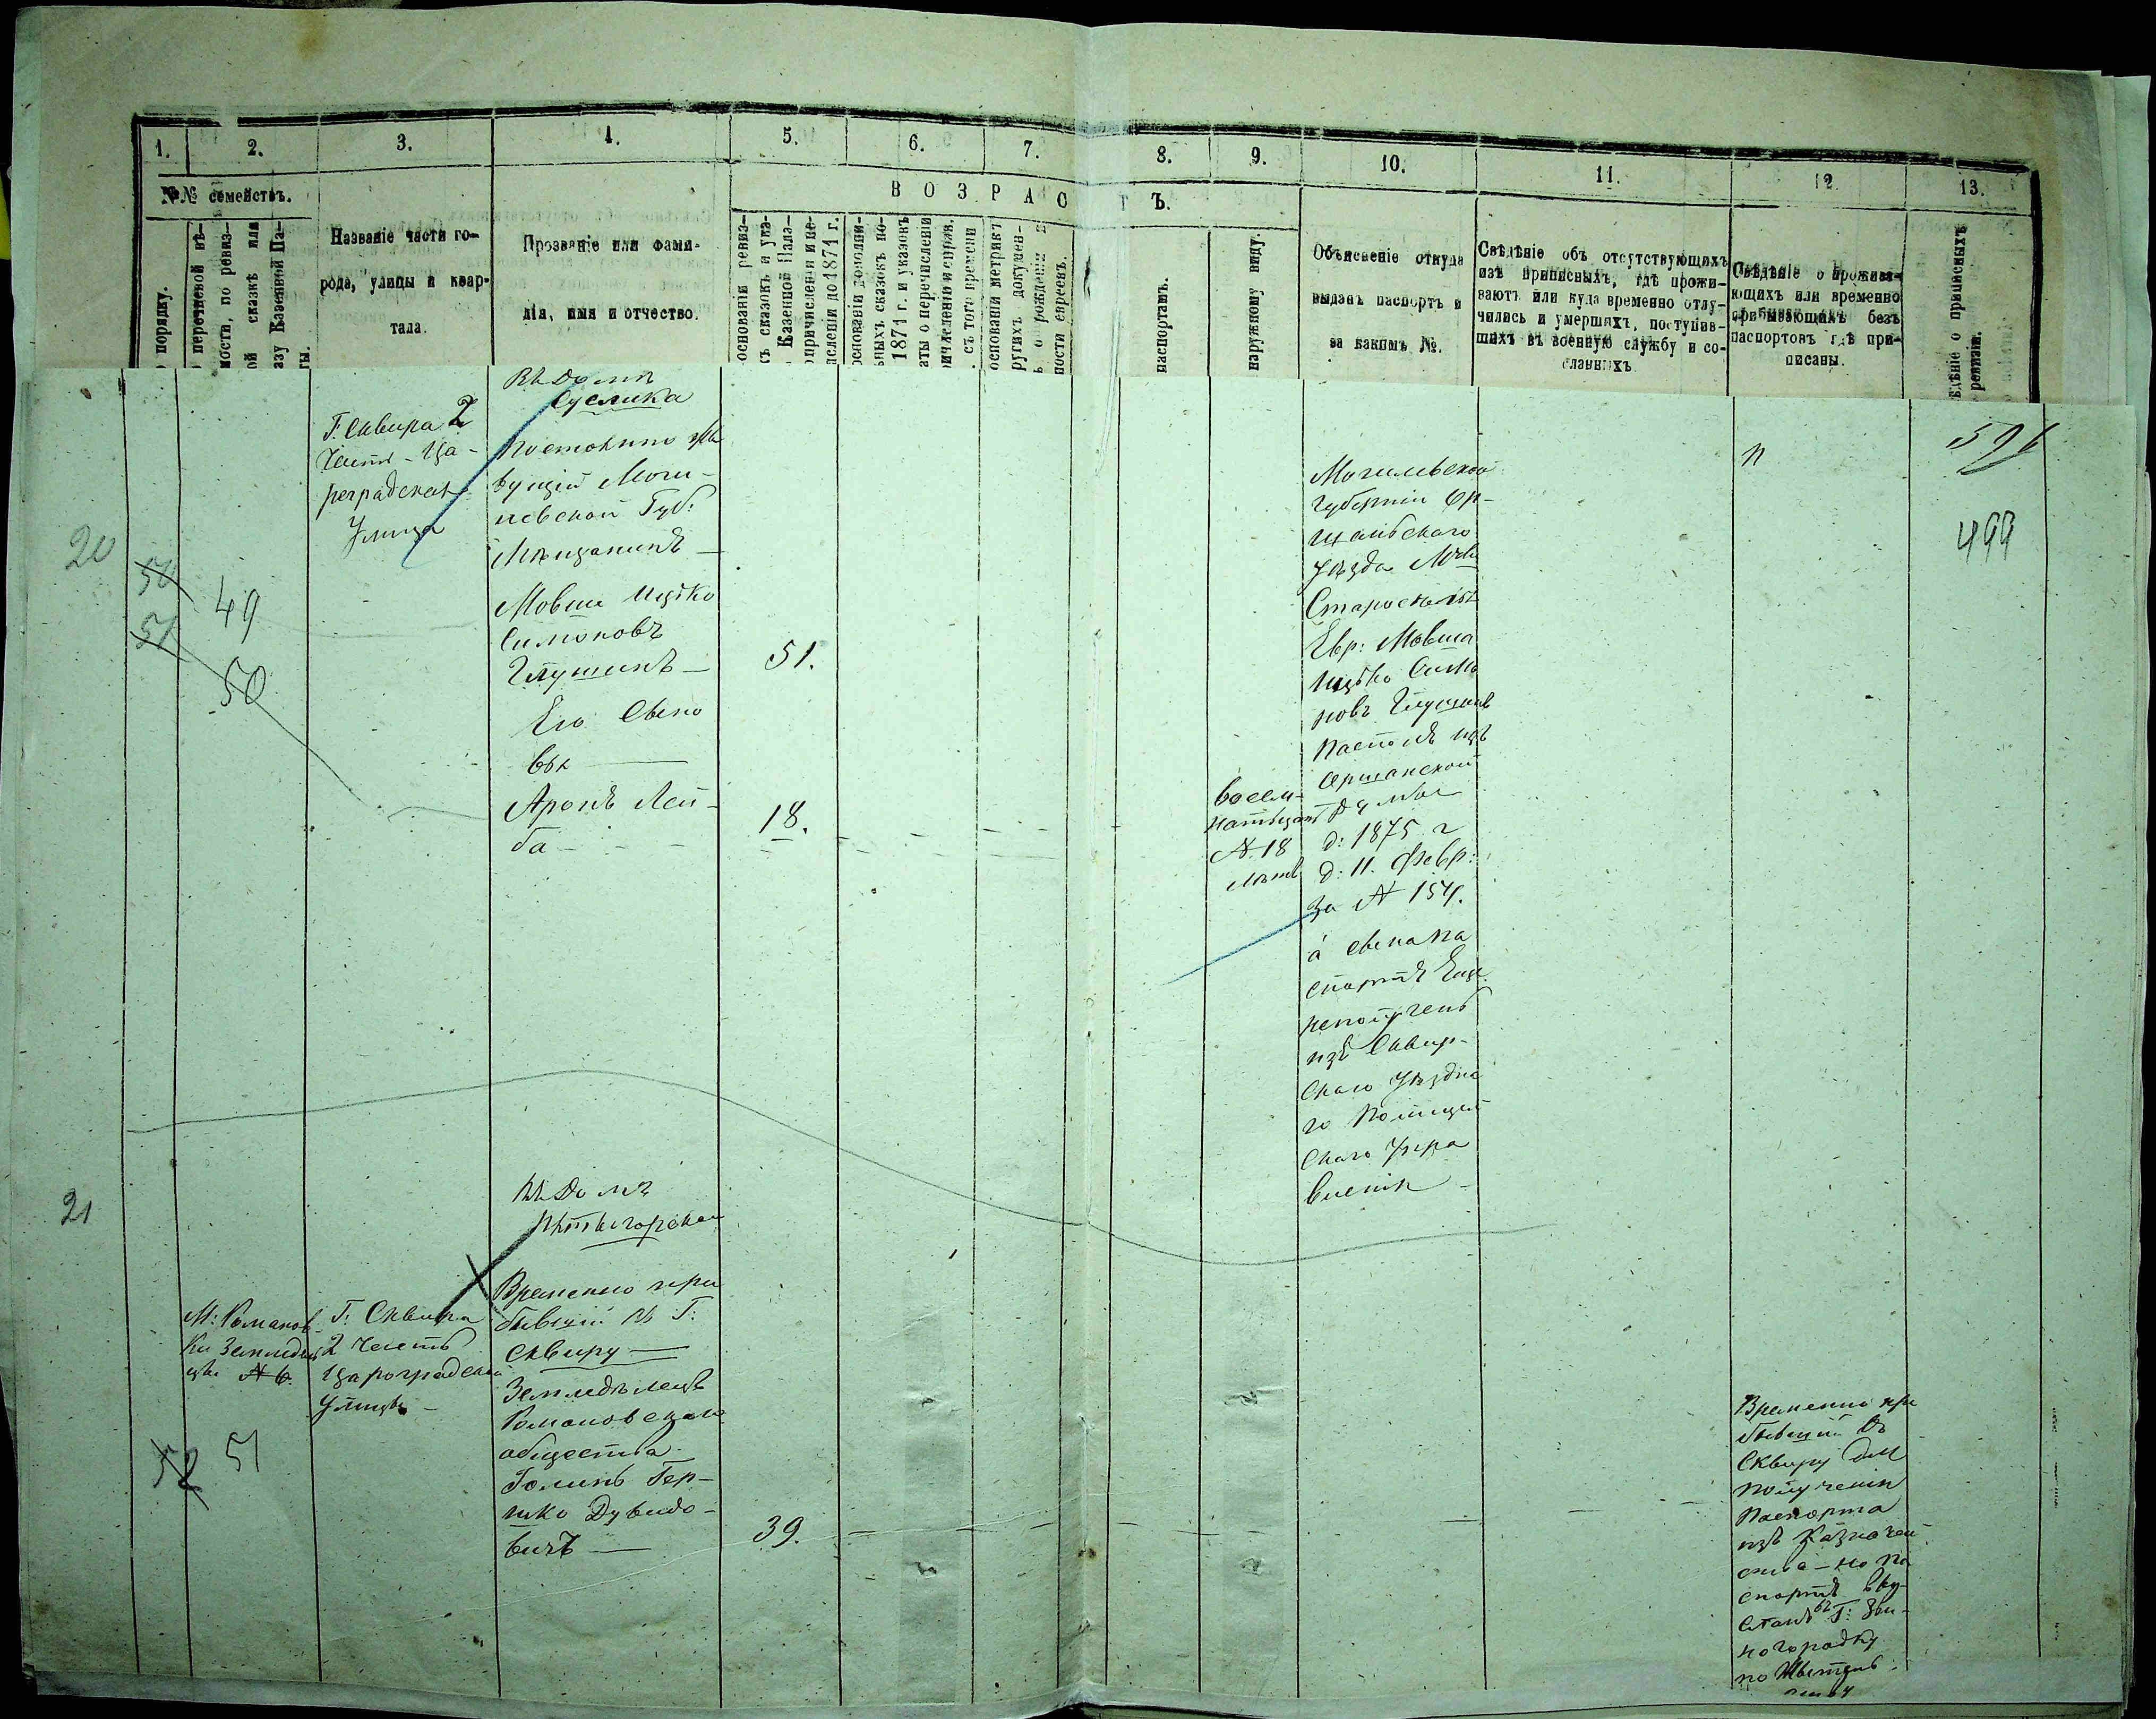 1.
2.
3.
4.
5.
6.
7.
8.
9.
10.
11.
12.
13.
№№ семействъ.
В О З Р А С Т Ъ.
порядку.
перечневой вѣ-
мости, по ревиз-
ой сказкѣ или
азу Казенной Па-
ты.
Названіе части го-
рода, улицы и квар-
тала.
Прозваніе или фами-
лія, имя и отчество.
основаніи ревиз-
съ сказокъ и ука-
Казенной Пала-
опричисленіи и пе-
исленіи до 1871 г.
основаніи дополни-
ьныхъ сказокъ по-
1871 г. и указовъ
аты о перечисленіи
ричисленіи и справ.
съ того времени
основаніи метрикъ
ругихъ докумен-
ъ о рожденіи и
ности евреевъ.
паспортамъ.
наружному виду.
Объясненіе откуда
выданъ паспортъ и
за какимъ №.
Свѣдѣніе объ отсутствующихъ
изъ приписныхъ, гдѣ прожи-
ваютъ или куда временно отлу-
чились и умершихъ, поступив-
шихъ въ военную службу и со-
сланныхъ
Свѣдѣніе о прожива-
ющихъ или временно
пребывающихъ безъ
паспортовъ гдѣ при-
писаны.
дѣніе о приписныхъ
ревизіи.
20
50
51
49
50
Г. Сквира 2
Часть - Ца-
реградская
Улица
Въ домѣ
Суслика
Постоянно жи
вущій Моги-
левской Губ:
Мѣщанинъ
Мовша Ицко
Симоновъ
Глушинъ
Его Сыно
вья
Аронъ Лей-
ба
51.
18.
Восем-
надцать
№ 18
лѣтъ
Могилевской
Губерніи Ор-
шанскаго
Уѣзда
Евр: Мовша
Ицко Симо
новъ Глушинъ
изъ
Оршанской
Думы
д: 1875 г
д: 11. Февр:
за № 154.
а сына па
спортъ Еще
неполученъ
изъ Сквир-
скаго Уѣздна
го Полицей
скаго Упра
вленія
499
21
М: Романов-
ки Земледѣль
цы № 6.
52
51
Г: Сквира
2 Часть
Цароградская
Улица
Въ домѣ
Пятигорской
Временно при
бывшій въ Г:
Сквиру
Земледѣлецъ
Романовскаго
общества
Голинъ Гер-
шко Дувидо-
вичъ
39.
Временно при
бывшій въ
Сквиру для
полученія
Паспорта
изъ Казначей
ства - но па
спортъ
Г: Зве-
ногородку
по